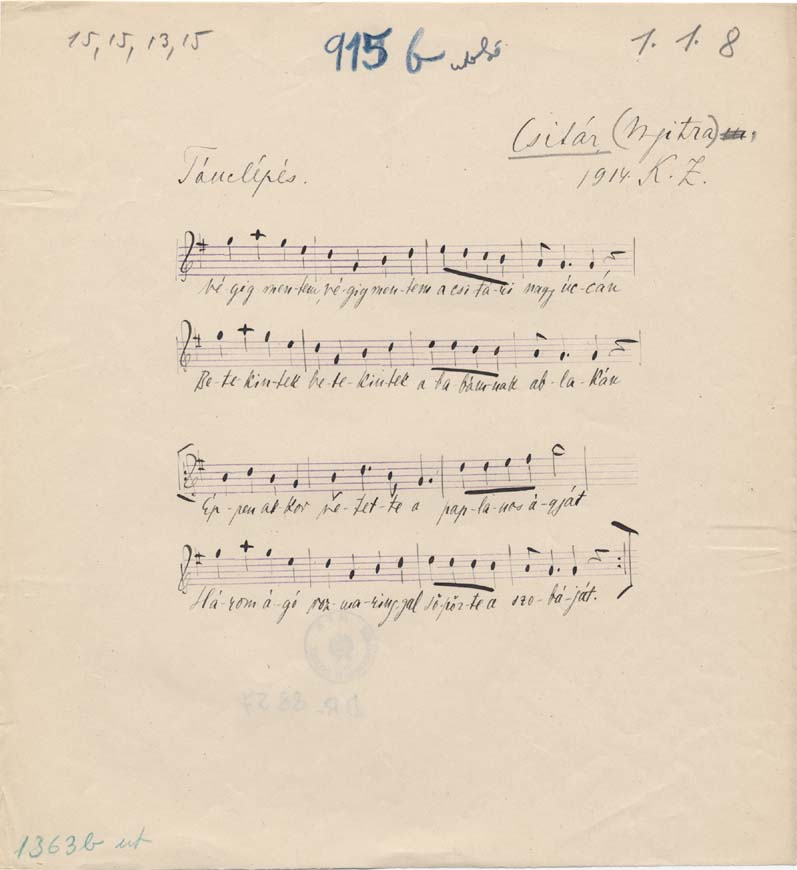 15, 15, 13, 15
915 b utolsó
1. 1. 8
Csitár, (Nyitra)
Tánclépés.
1914. K. Z.
Vé-gig men-tem, vé-gig men-tem a csi-tá-ri nagy úc-cán
Be-te-kin-tek be-te-kin-tek a ba-bám-nak ab-la-kán
Ép-pen ak-kor ve-tet-te a pap-la-nos á-gyját
Há-rom á-gó roz-ma-ringgal söpör-te a szo-bá-ját.
1363b ut